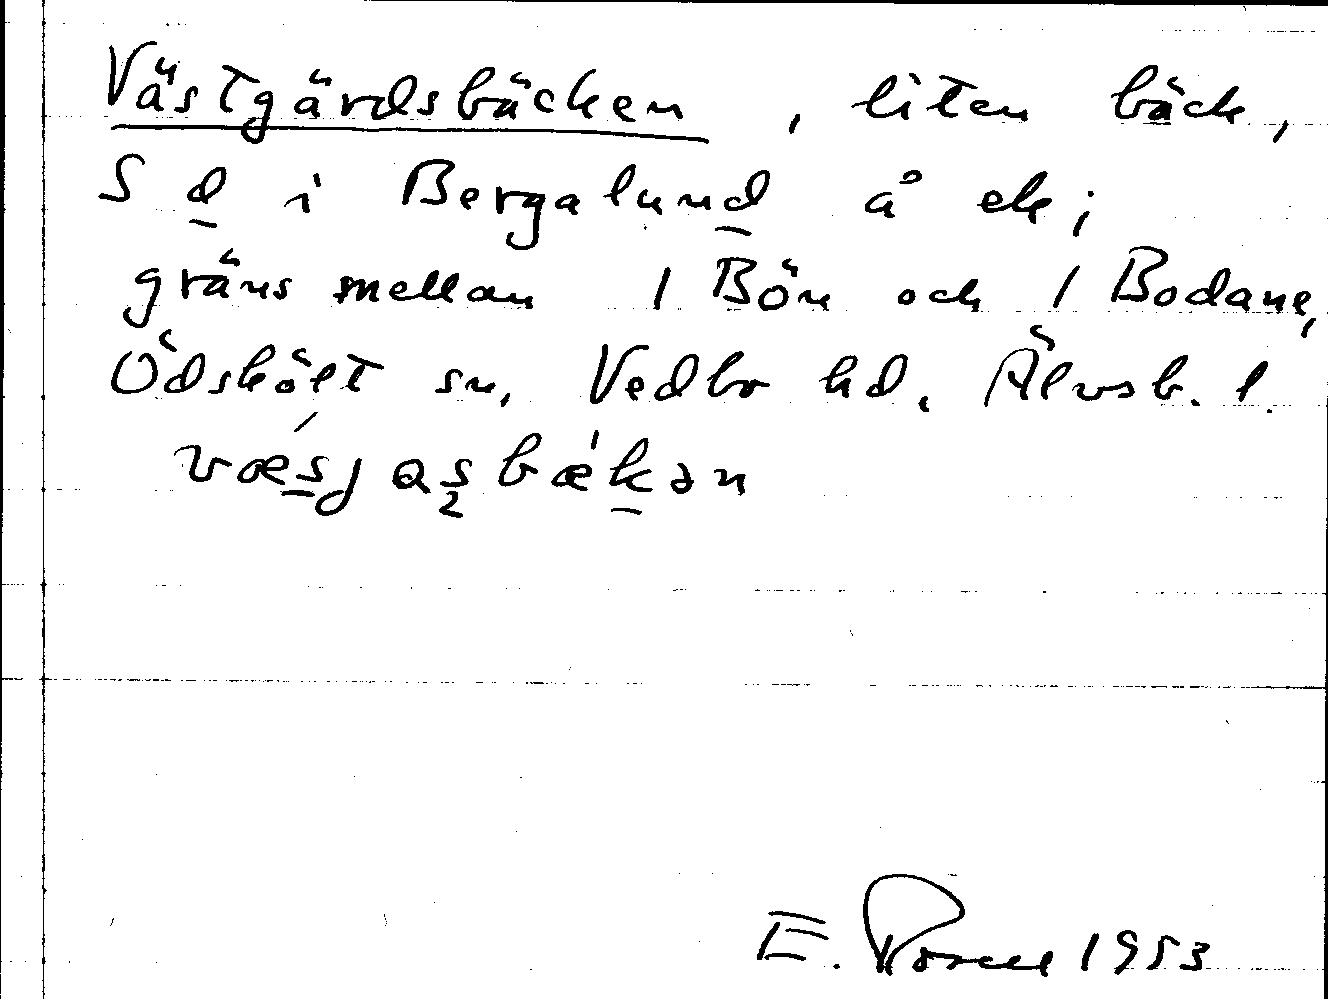 Västgärdsbäcken, liten bäck,
S d i Bergalund å ek;
gräns mellan 1 Bön och 1 Bodane,
Ödskölt sn, Vedbo hd. Älvsb. l.
væsjasbækən
E. 1953